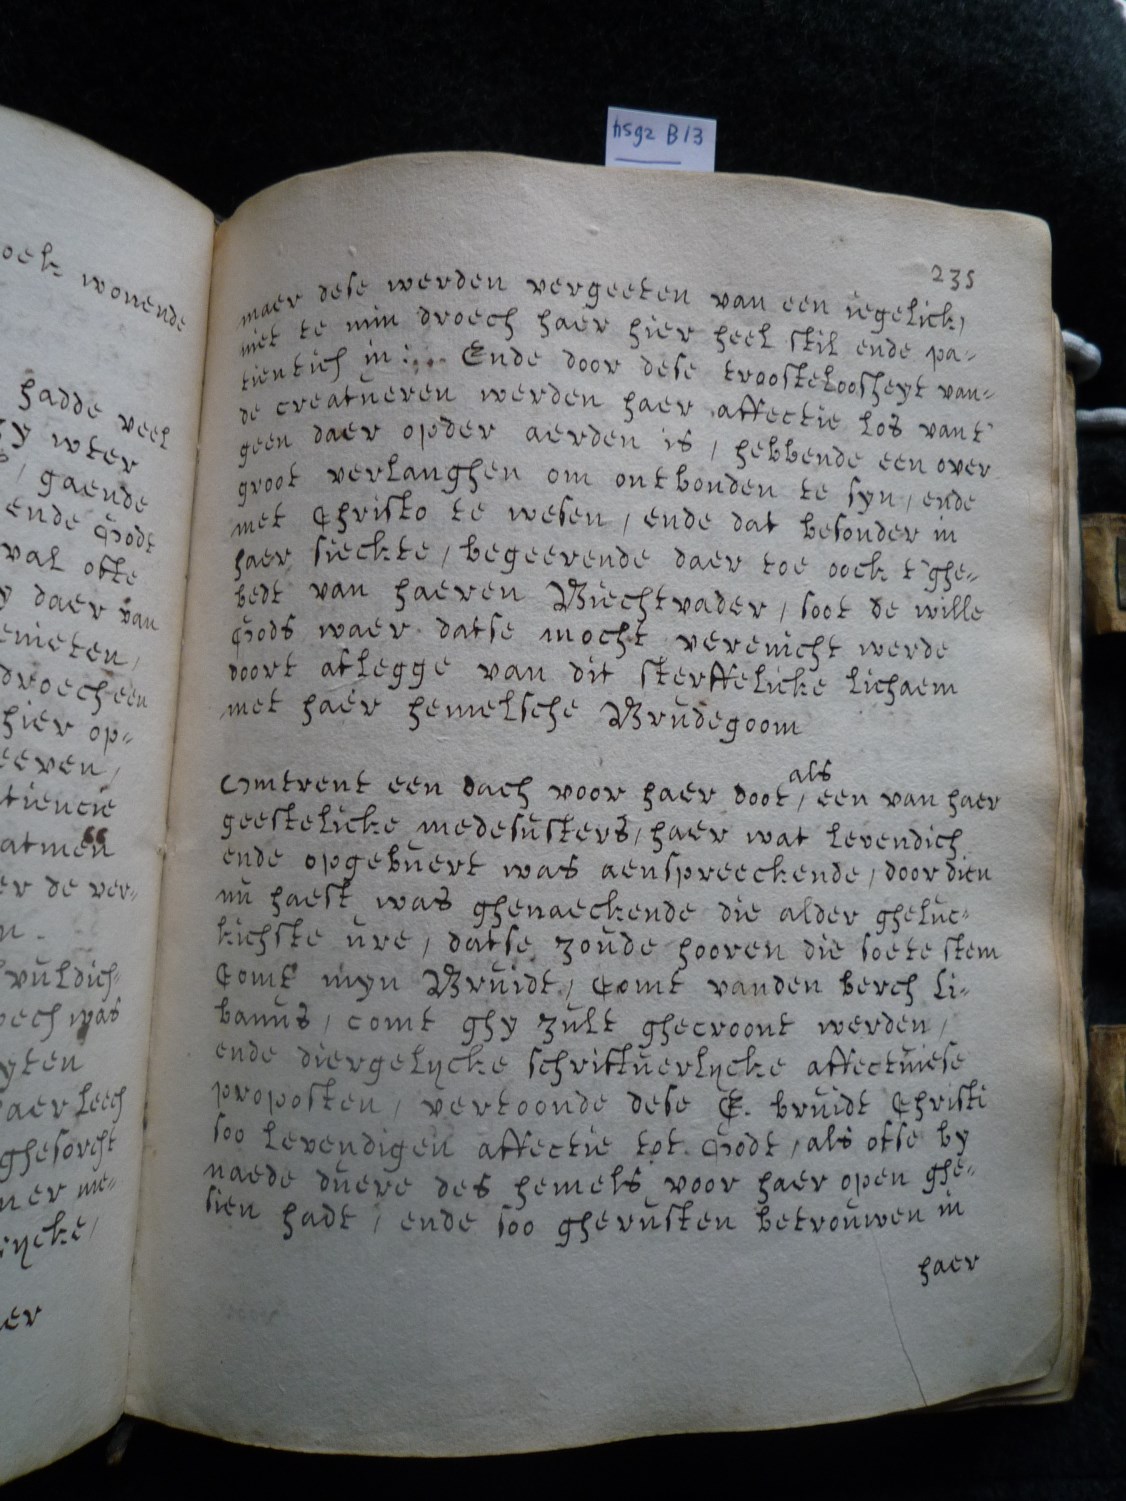 hsg2 B13
oek wonende
hadde veel
gy wter
gaende
ende Godt
val ofte
y daer van
enieten,
droech een
hier op-
eeven,
tiencie
atmen
er de ver-
n.
vuldich-
oech was
yten
aer leech
ghesorcht
mer me-
ijcke,
er
235
maer dese werden vergeeten van een iegelick,
niet te min droech haer hier heel stil ende pa-
tientich in:... Ende door dese troosteloosheyt van-
de creatueren werden haer affectie los vant
geen daer opder aerden is, hebbende een over
groot verlanghen om ontbonden te syn, ende
met Christo te wesen, ende dat besonder in
haer sieckte, begeerende daer toe oock t'ghe-
bedt van haeren Biechtvader, soot de wille
Gods waer datse mocht verenicht werde
doort aflegge van dit sterffelicke lichaem
met haer hemelsche Brudegoom
Omtrent een dach voor haer doot, als een van haer
geestelicke medesusters, haer wat levendich
ende opgebuert was aenspreeckende, door dien
nu haest was ghenaeckende die alder gheluc-
kichste ure, datse zoude hooren die soete stem
Comt myn Bruidt, Comt vanden berch Li-
banus, comt ghy zult ghecroont werden,
ende diergelijcke schriftuerlijcke affectuiese
proposten, vertoonde dese E. bruidt Christi
soo levendigen affectie tot Godt, als ofse by
naede duere des hemels voor haer open ghe-
sien hadt, ende soo gherusten betrouwen in
haer